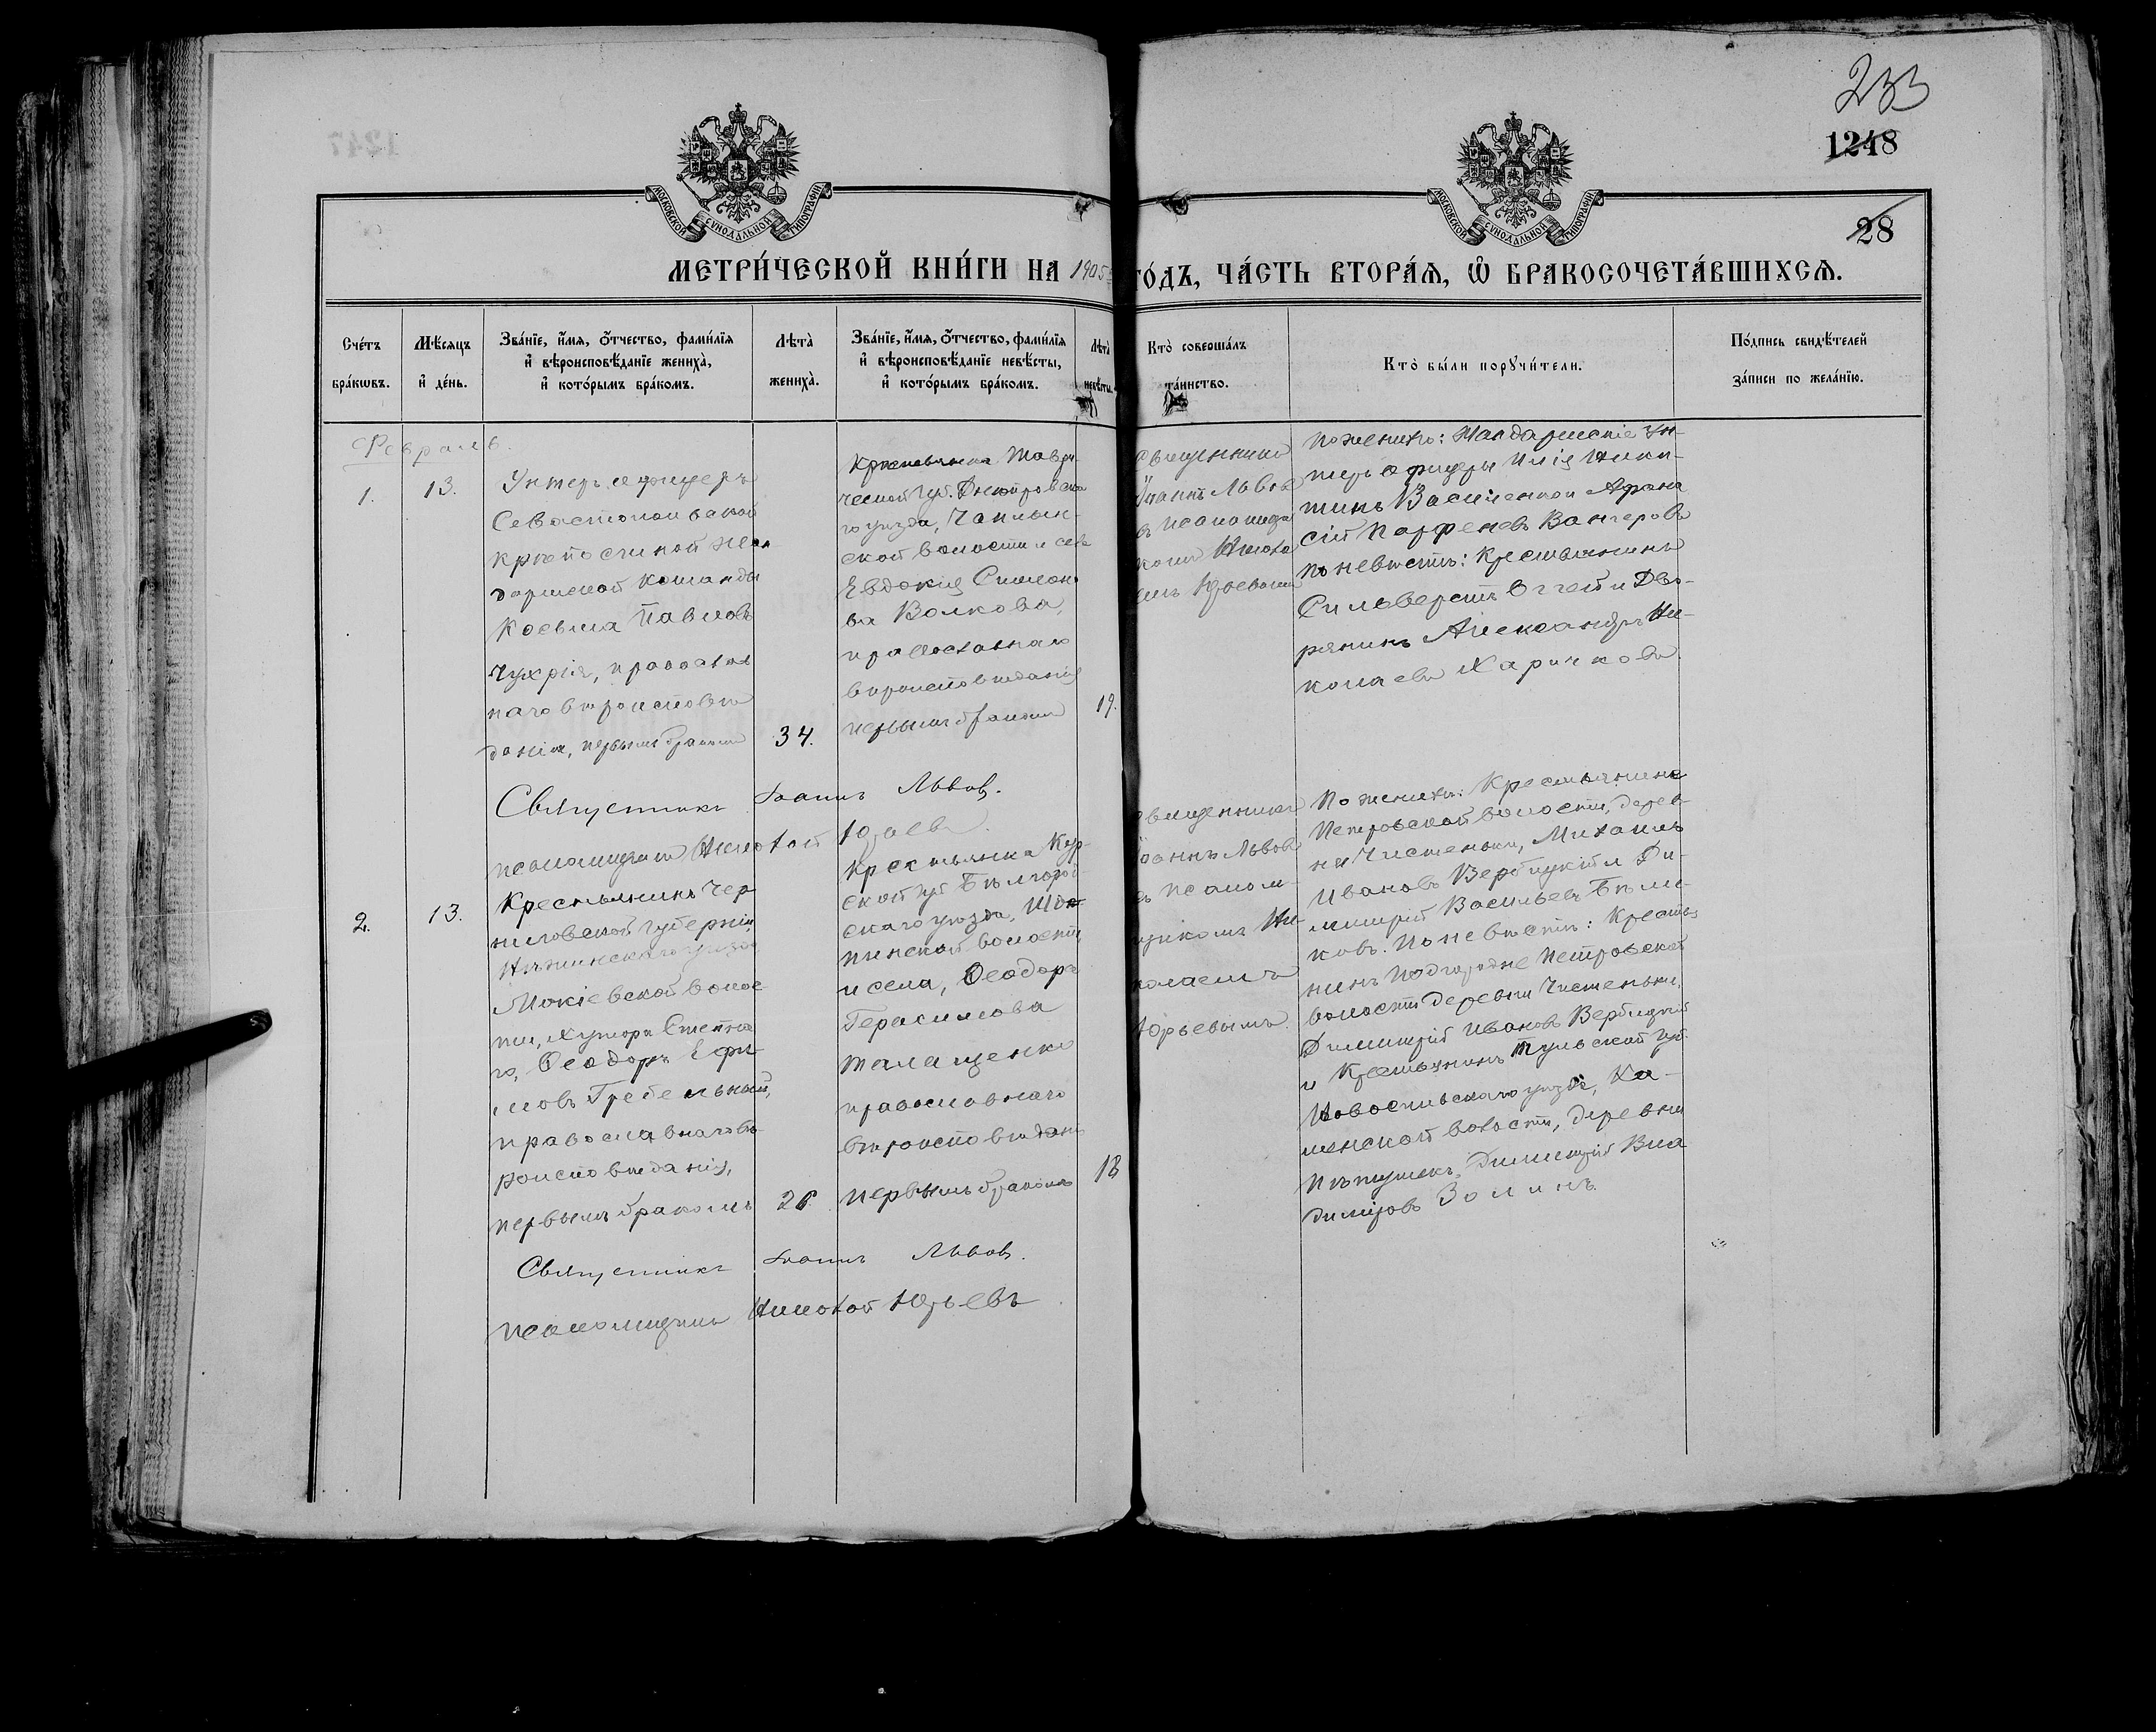 233
1248
28
МОСКОВСКОЙ СУНОДАЛЬНОЙ ТИПОГРАФІИ
МОСКОВСКОЙ СУНОДАЛЬНОЙ ТИПОГРАФІИ
МЕТРИ́ЧЕСКОЙ КНИ́ГИ НА 1905 ГО́ДЪ, ЧА́СТЬ ВТОРА́Я, Ѡ БРАКОСОЧЕТА́ВШИХСЯ.
Сче́тъ бра́кѡвъ.
Мѣ́сяцъ и҆ де́нь.
Зва́нїе, и҆́мя, ѻ҆́тчество, фами́лїя
и҆ вѣроисповѣ́данїе жениха̀,
и҆ кото́рымъ бра́комъ.
Лѣта̀ жениха̀.
Зва́нїе, и҆́мя, ѻ҆́тчество, фами́лїя
и҆ вѣроисповѣ́данїе невѣ́сты,
и҆ кото́рымъ бра́комъ.
Лѣта̀ невѣ́сты.
Кто̀ соверша́лъ та́инство.
Кто̀ бы́ли порꙋчи́тели.
По́дпись свидѣ́телей
за́писи по жела́нїю.
Февраль.
1.
13.
Унтеръ офицеръ
Севастопольской
крѣпостной жан
дармской команды
Косьма Павловъ
Чухрій, православ
наго вѣроисповѣ
данія, первымъ бракомъ
34.
Крестьянка Таври
ческой губ. Днѣпровска
го уѣзда, Чаплын-
ской волости и села
Евдокія Симеоно
ва Волкова,
православнаго
вѣроисповѣданія
первымъ бракомъ
19.
Священникъ
Іоаннъ Львовъ
съ псаломщи
комъ Никола
емъ Юрьевымъ
По женихѣ: Жандармскіе Ун-
теръ офицеры Илія Ники-
тинъ Василенко и Афана
сій Парфеневъ
по невѣстѣ: Крестьянинъ
Сильверстъ и Дво-
рянинъ Александръ Ни-
колаевъ Харичковъ.
Священникъ Іоаннъ Львовъ.
псаломщикъ Николай Юрьевъ.
2.
13.
Крестьянинъ Чер
ниговской губерніи,
Нѣжинскаго уѣзда
Мокіевской волос
ти, хутора Степна
го, Ѳеодоръ Ефи
мовъ Гребельный,
православнаго вѣ-
роисповѣданія,
первымъ бракомъ
26.
Крестьянка Кур-
ской губ Бѣлгород-
скаго уѣзда, Шо-
пинской волости
и села, Ѳеодора
Герасимова
Талащенко
православнаго
вѣроисповѣдані
первымъ бракомъ
18
Священникъ
Іоаннъ Львовъ
съ псалом-
щикомъ Ни-
колаемъ
Юрьевымъ.
По женихѣ: Крестьянинъ
Петровской волости, дерев-
ни Чистенькой, Михаилъ
Ивановъ Вербицкій и Ди-
митрій Васильевъ Бѣли-
ковъ. По невѣстѣ: Крестья
нинъ Подгородне Петровской
волости деревни Чистенькой,
Димитрій Ивановъ Вербицкій
и Крестьянинъ Тульской губ.
Новосильскаго уѣзда, Ка-
менской волости, деревни
Пѣтушекъ, Димитрій Вла
диміровъ Золинъ.
Священникъ Іоаннъ Львовъ.
псаломщикъ Николай Юрьевъ